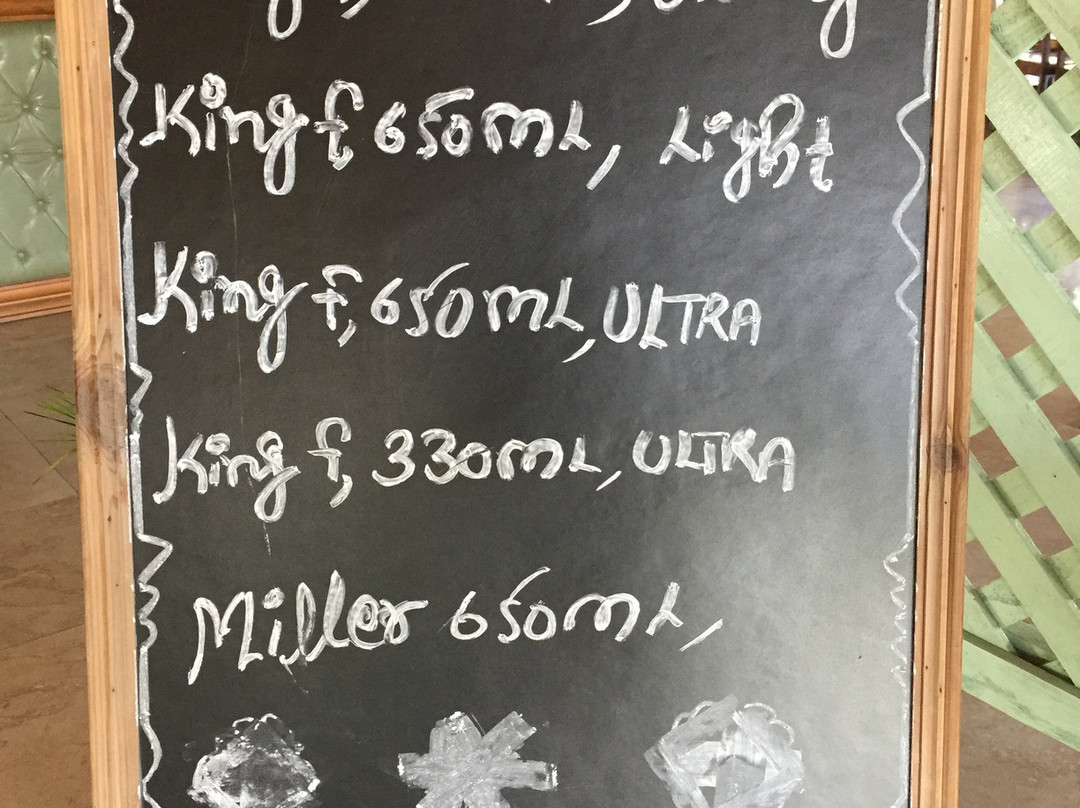 King f, 650mL, Light
King f, 650mL, ULTRA
King f, 330mL, ULTRA
Miller 650mL,